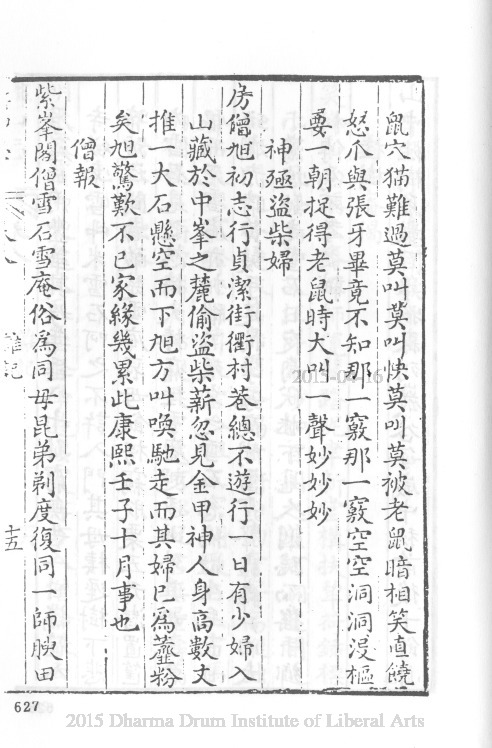 鼠穴猫難過莫叫莫叫快莫叫莫被老鼠暗相笑直饒
怒爪與張牙畢竟不知那一竅那一竅空空洞洞没樞
要一朝捉得老鼠時大叫一聲妙妙妙
神殛盜柴婦
房僧旭初志行貞潔街衢村巷總不遊行一日有少婦入
山藏於中峯之麓偷盜柴薪忽見金甲神人身高數丈
推一大石懸空而下旭方叫喚馳走而其婦已為虀粉
矣旭驚歎不已家緣幾累此康熙壬子十月事也
僧報
紫峯閣僧雪石雪庵俗為同母昆弟剃度復同一師腴田
雜記
十五
627
2015 Dharma Drum Institute of Liberal Arts